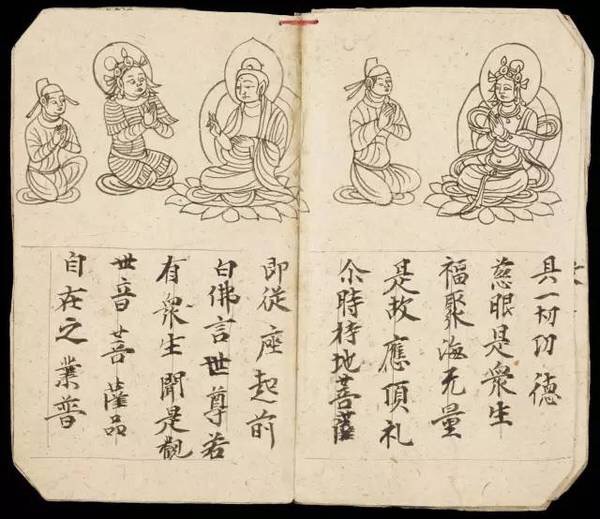 具一切功德
慈眼是衆生
福聚海无量
是故應頂礼
尒時持地菩薩
即從座起前
白佛言世尊若
有衆生聞是觀
世音菩薩品
自在之業普